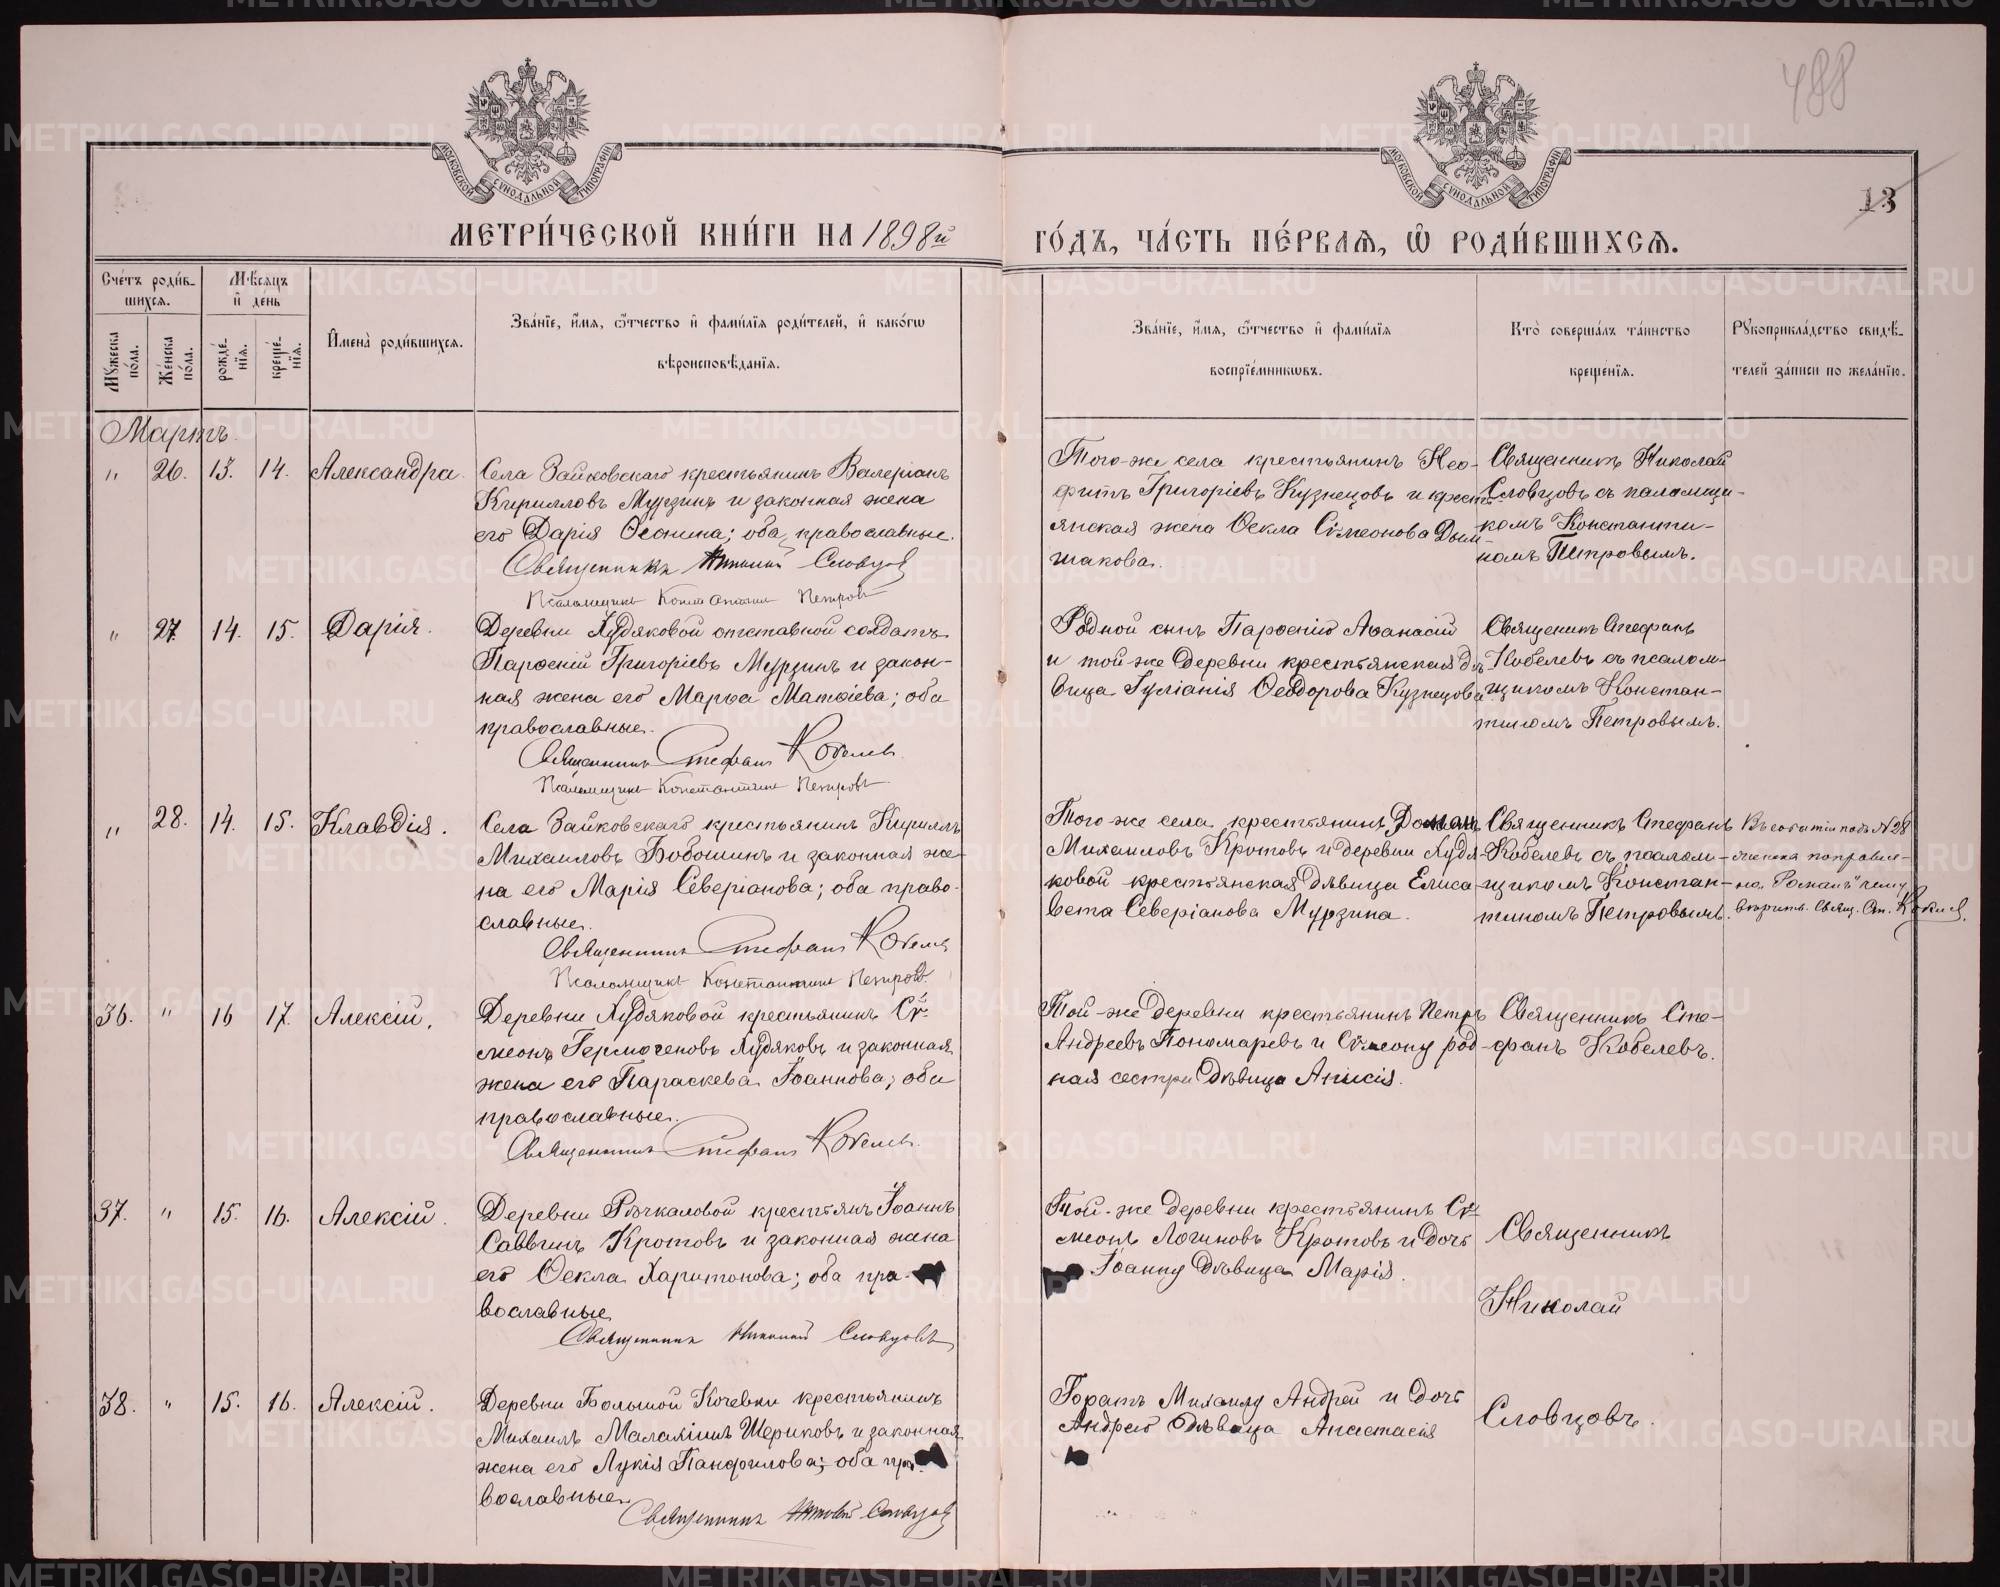 488
13
МОСКОВСКОЙ СѴНОДАЛЬНОЙ ТИПОГРАФІИ
МОСКОВСКОЙ СѴНОДАЛЬНОЙ ТИПОГРАФІИ
МЕТРИ́ЧЕСКОЙ КНИ́ГИ НА 1898й
ГО́ДЪ, ЧА́СТЬ ПЕ́РВАѦ, Ѡ҆ РОДИ́ВШИХСѦ.
Сче́тъ роди́в-
шихсѧ.
Мѣ́сѧцъ
и҆ день
Мꙋ́жеска
по́ла.
Же́нска
по́ла.
рожде́-
нїѧ.
креще́-
нїѧ.
И҆мена̀ роди́вшихсѧ.
Зва́нїе, и҆́мѧ, ѻ҆́тчество и҆ фами́лїѧ роди́телей, и҆ како́гѡ
вѣроисповѣ́данїѧ.
Зва́нїе, и҆́мѧ, ѻ҆́тчество и҆ фами́лїѧ
воспрїе́мникѡвъ.
Кто̀ соверша́лъ та́инство
креще́нїѧ.
Рꙋкоприкла́дство свидѣ́-
телей за́писи по жела́нїю.
Мартъ
" 26. 13. 14. Александра.
Села Зайковскаго крестьянинъ Валеріанъ
Кирилловъ Мурзинъ и законная жена
его Дарія Ѳеонина; оба православные.
Священникъ Николай Словцовъ
Псаломщикъ Константинъ Петровъ
Того-же села крестьянинъ Нео-
фитъ Григоріевъ Кузнецовъ и кресть-
янская жена Ѳекла Сѵмеонова Дым-
шакова.
Священникъ Николай
Словцовъ съ псаломщи-
комъ Константи-
номъ Петровымъ.
" 27. 14. 15. Дарія.
Деревни Худяковой отставной солдатъ
Парѳеній Григоріевъ Мурзинъ и закон-
ная жена его Марѳа Матѳіева; оба
православные.
Священникъ Стефанъ Кобелевъ
Псаломщикъ Константинъ Петровъ
Родной сынъ Парѳенію Аѳанасій
и той-же деревни крестьянская дѣ-
вица Іуліанія Ѳеодорова Кузнецова.
Священникъ Стефанъ
Кобелевъ съ псалом-
щикомъ Констан-
тиномъ Петровымъ.
" 28. 14. 15. Клавдія.
Села Зайковскаго крестьянинъ Кириллъ
Михаиловъ Бобошинъ и законная же-
на его Марія Северіанова; оба право-
славные.
Священникъ Стефанъ Кобелевъ
Псаломщикъ Константинъ Петровъ
Того-же села крестьянинъ
Михаиловъ Кротовъ и деревни Худя-
ковой крестьянская дѣвица Елиса-
вета Северіанова Мурзина.
Священникъ Стефанъ
Кобелевъ съ псалом-
щикомъ Констан-
тиномъ Петровымъ.
Въ событіи подъ №28
поправле-
но "Романъ" чему
вѣрить. Свящ. Ст. Кобелевъ.
36. " 16 17. Алексій.
Деревни Худяковой крестьянинъ Сѵ-
меонъ Гермогеновъ Худяковъ и законная
жена его Параскева Іоаннова; оба
православные.
Священникъ Стефанъ Кобелевъ.
Той-же деревни крестьянинъ Петръ
Андреевъ Пономаревъ и Сѵмеону род-
ная сестра дѣвица Анисія.
Священникъ Сте-
фанъ Кобелевъ.
37. " 15. 16. Алексій.
Деревни Рѣчкаловой крестьян. Іоаннъ
Саввинъ Кротовъ и законная жена
его Ѳекла Харитонова; оба пра-
вославные
Священникъ Николай Словцовъ
Той-же деревни крестьянинъ Сѵ-
меонъ Логиновъ Кротовъ и дочь
Іоанну дѣвица Марія.
Священникъ
Николай
Словцовъ.
38. " 15. 16. Алексій.
Деревни Большой Кочевки крестьянинъ
Михаилъ Малахіинъ Шериковъ и законная
жена его Лукія Панфилова; оба пра-
вославные.
Священникъ Николай Словцовъ
Михаилу Андрей и дочь
Андрею дѣвица Анастасія
METRIKI.GASO-URAL.RU